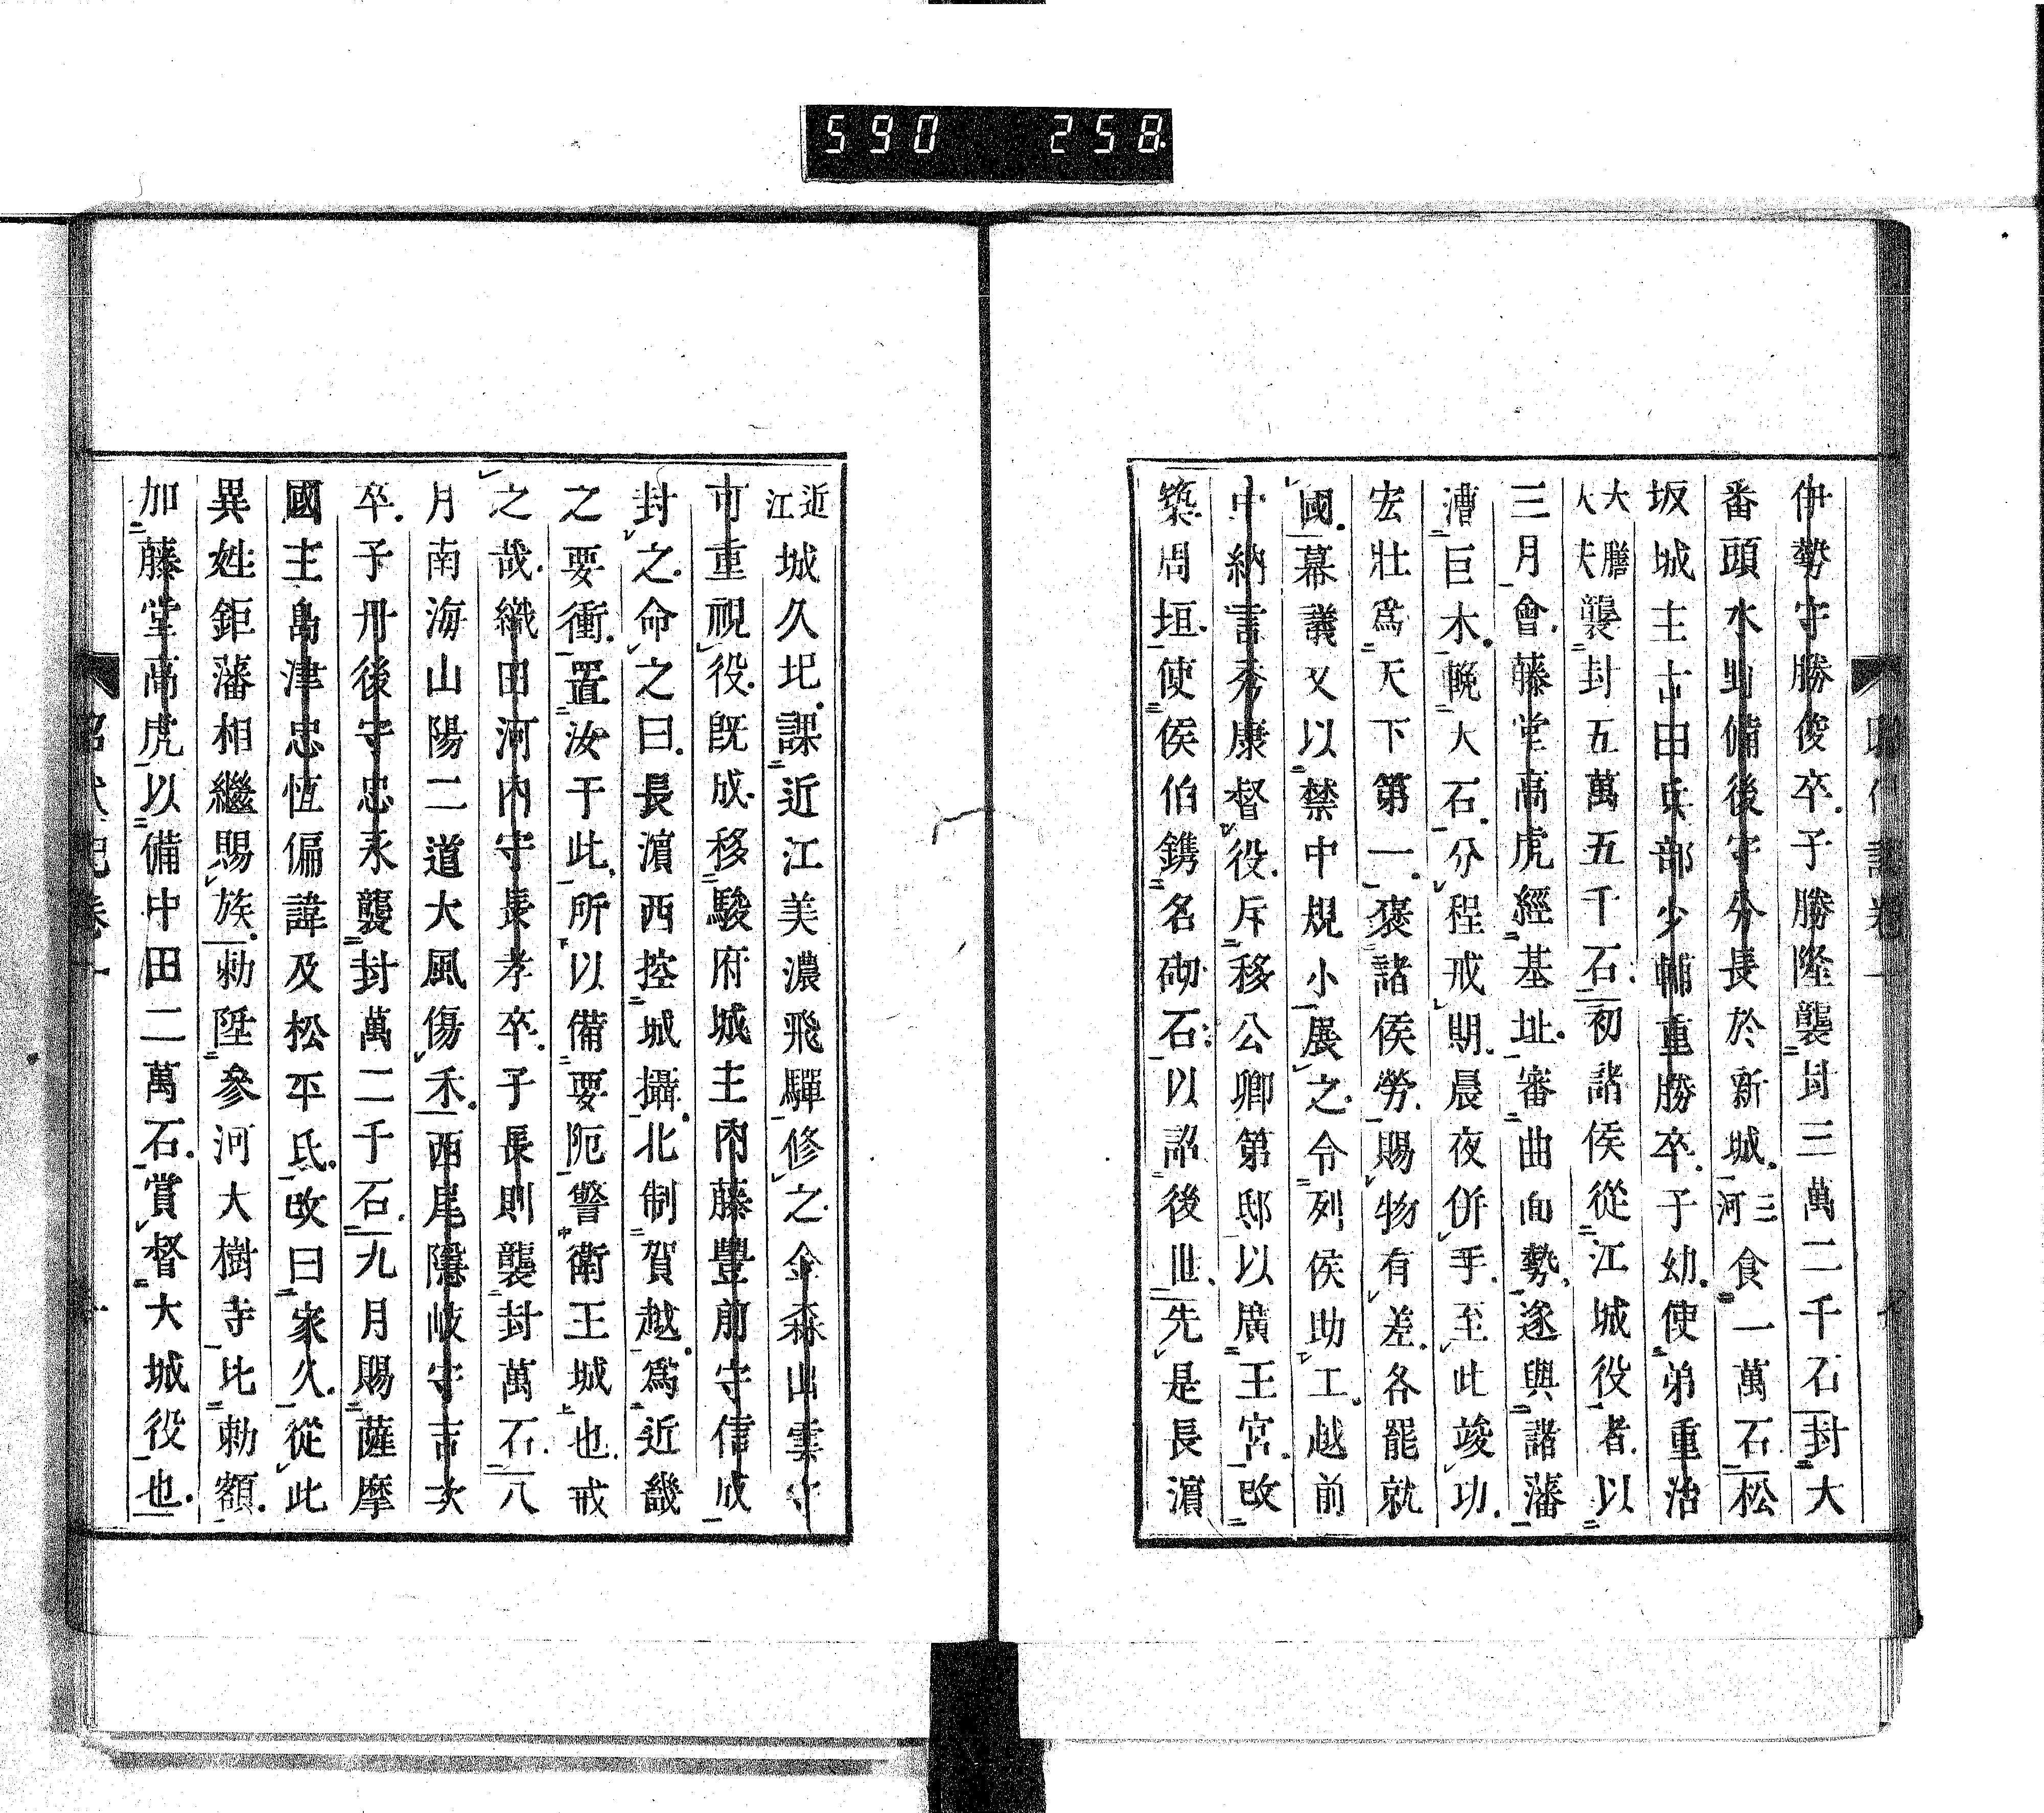 590 258
伊勢守勝俊卒子勝隆襲封三萬二千石封大
番頭水野備後守分長於新城三河食一萬石松
坂城主古田兵部少輔重勝卒子幼使弟重治
大膳大夫襲封五萬五千石初諸侯從江城役者以
三月會藤堂高虎經基址審曲面勢遂與諸藩
漕巨木輓大石分程戒期晨夜併手至此竣功
宏壯爲天下第一褒諸侯勞賜物有差各罷就
國幕議又以禁中規小展之令列侯助工越前
中納言秀康督役斥移公卿第邸以廣王宮改
築周垣使侯伯鐫名砌石以詔後世先是長濵
近江城久圯課近江美濃飛驒修之金森出雲守
可重視役既成移駿府城主内藤豐前守信成
封之命之曰長濵西控城攝北制賀越爲近畿
之要衝置汝于此所以備要阨警衛王城也戒
之哉織田河内守長孝卒子長則襲封萬石八
月南海山陽二道大風傷禾西尾隱岐守吉次
卒子丹後守忠永襲封萬二千石九月賜薩摩
國主島津忠恆偏諱及松平氏改曰家久從此
異姓鉅藩相繼賜族勅陞參河大樹寺比勅額
加藤堂高虎以備中田二萬石賞督大城役也